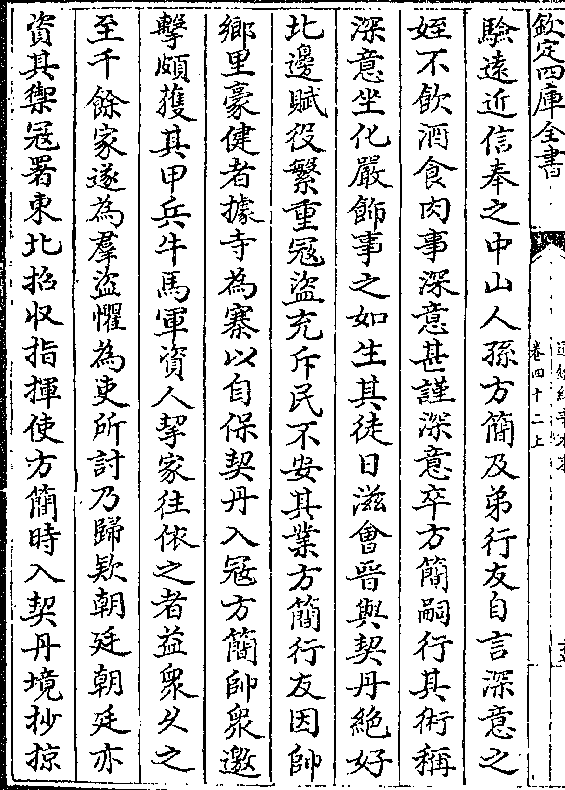 欽定四庫全書
卷四十二上
驗遠近信奉之中山人孫方簡及弟行友自言深意之
姪不飲酒食肉事深意甚謹深意卒方簡嗣行其術稱
深意坐化嚴飾事之如生其徒日滋會晋與契丹絶好
北邊賦役繁重冦盜充斥民不安其業方簡行友因帥
鄉里豪健者據寺為寨以自保契丹入冦方簡帥衆邀
擊頗獲其甲兵牛馬軍資人挈家往依之者益衆乆之
至千餘家遂為羣盜懼為吏所討乃歸欵朝廷朝廷亦
資其禦冦署東北招収指揮使方簡時入契丹境抄掠